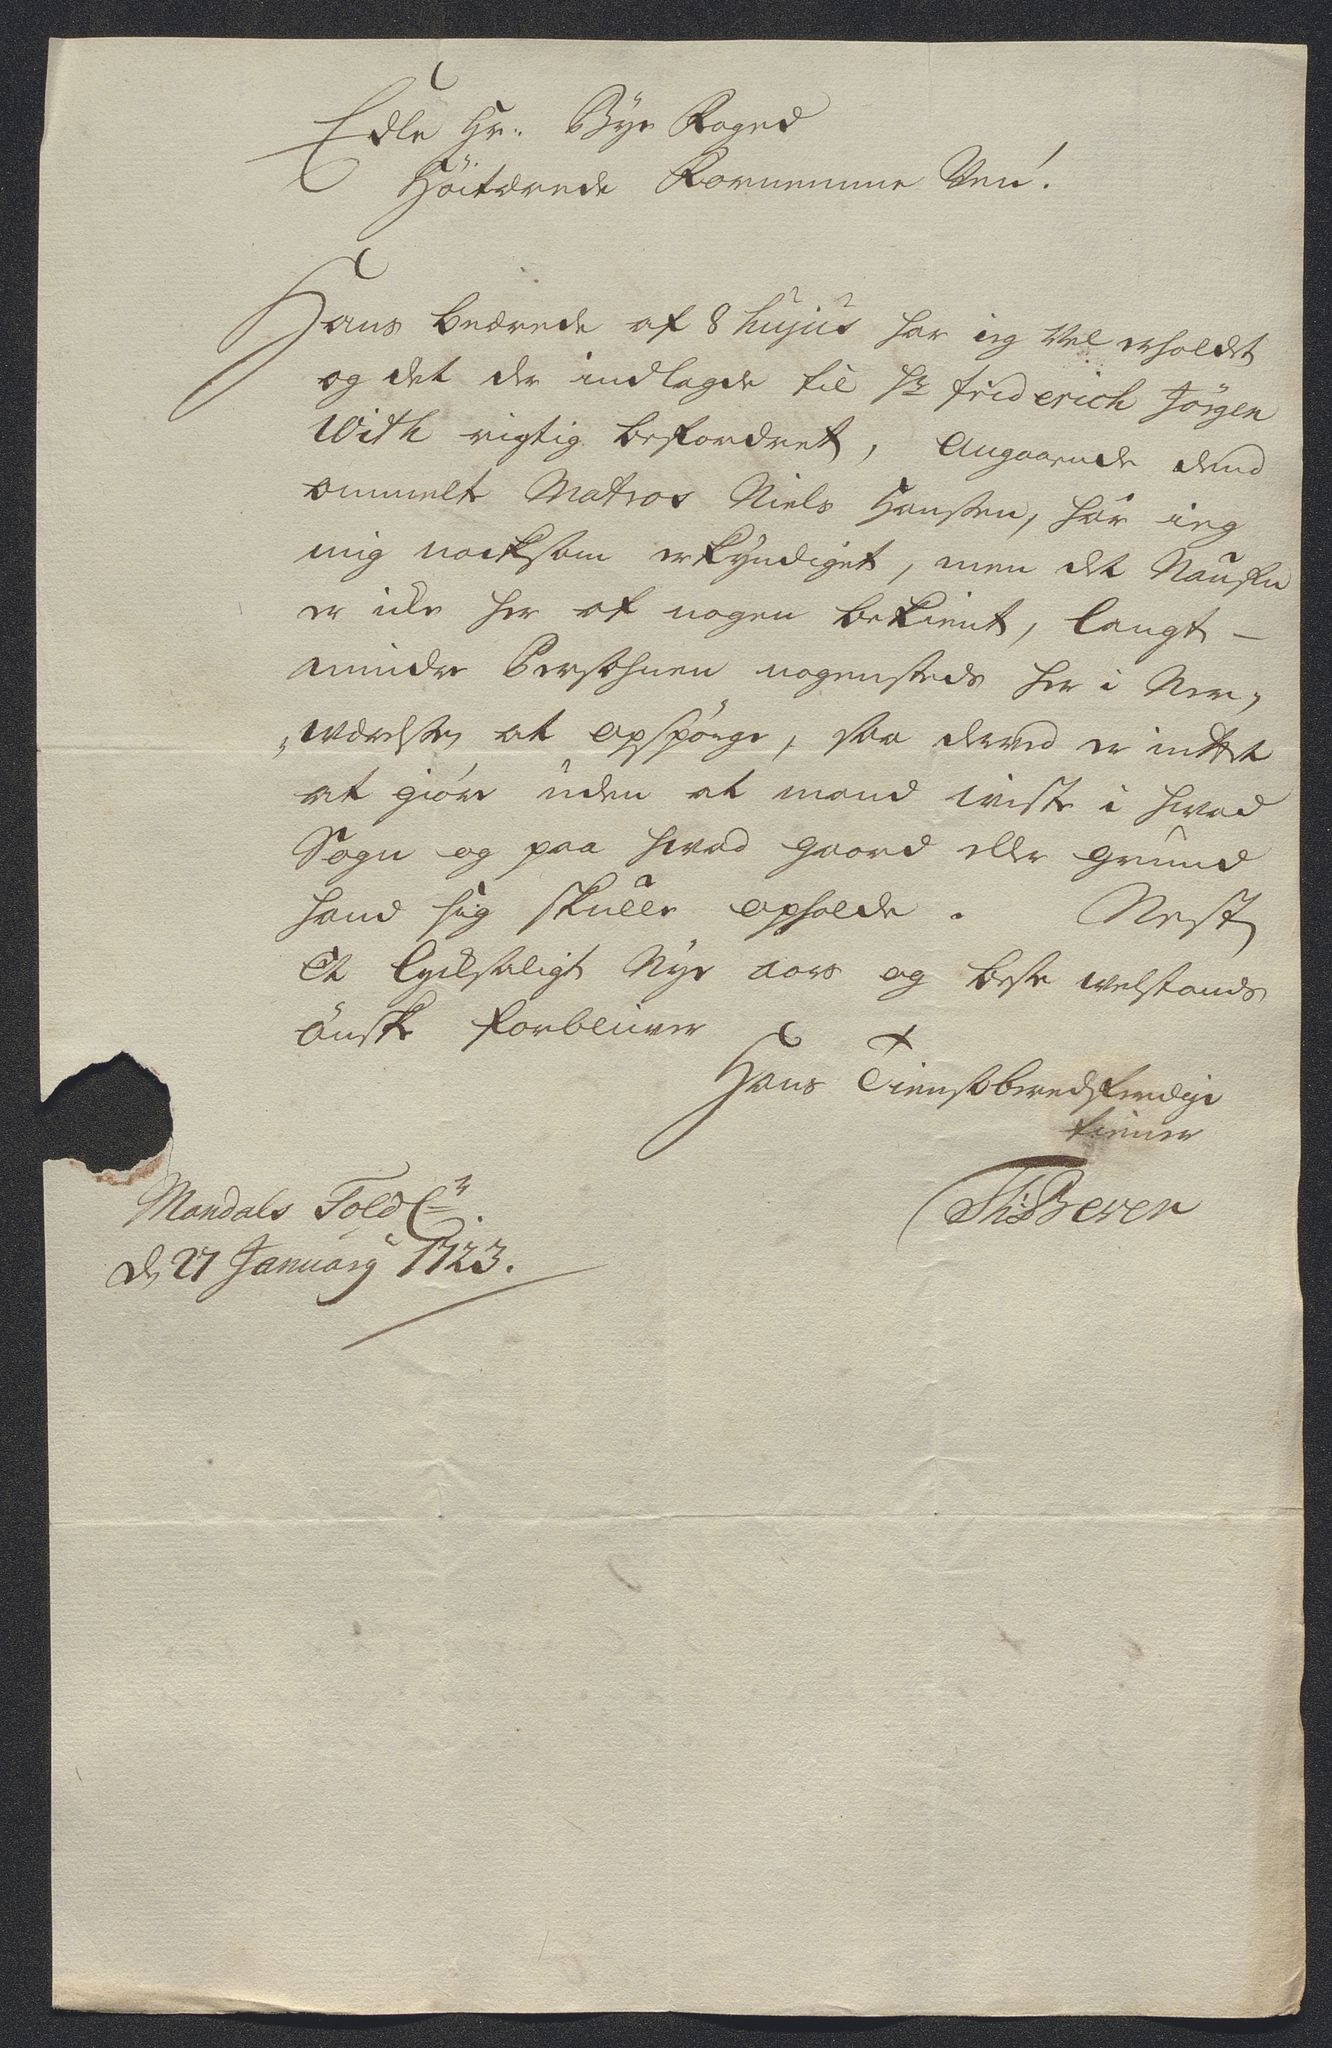 Edle Hr. Bye Foged
Höitærede Fornemme Ven.
Hans beærede af 8 hujus har ieg vel erholdet
og det der indlagde til Hr friderich Jörgen
With rigtig befordret, Angaaende dend
ommelte Matros Niels Hansen, har ieg
mig nocksom erkyndiget, men det Naufn
er icke her af nogen bekient, langt-
mindre Persohnen nogensteds her i Ner,,
,,værelsen at opspörge, saa derved er intet
at giöre uden at mand viste i hvad
Sogn og paa hvad gaard eller grund
hand sig skulle opholde. Nest
et lycksaligt Nye aars og beste velstands
önske forbliver
Hans Tienstberedferdige
tiener
This Beren
Mandals Told Cr
de 27 January 1723.